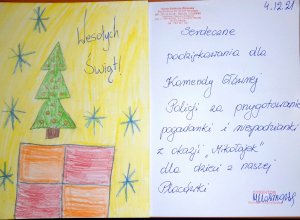 Wesołych
Świąt!
4.12.21
Serdeczne
podziękowania dla
Komendy Głównej
Policji za przygotowanie
pogadanki i niespodzianki
z okazji „Mikołajek”
dla dzieci z naszej
Placówki